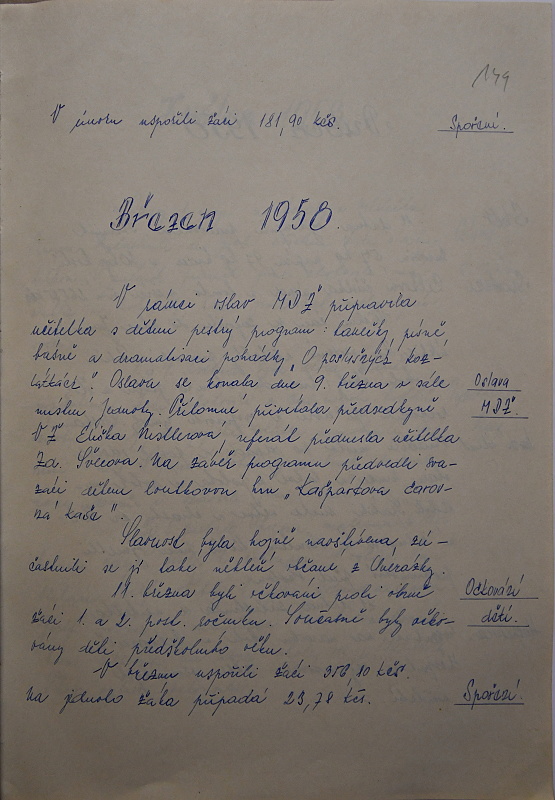 149
V únoru uspořili žáci 181,90 kčs.
Spoření.
Březen 1958.
V rámci oslav MDŽ připravila
učitelka s dětmi pestrý program: tanečky, písně,
básně a dramatisaci pohádky „O poslušných kůz-
látkách". Oslava se konala dne 9. března v sále
Oslava
místní Jednoty. Přítomné přivítala předsedkyně
MDŽ.
VŽ Eliška Nistlerová, referát přednesla učitelka
Zd. Sülcová. Na závěr programu předvedli sva-
záci dětem loutkovou hru „Kašpárkova čarov-
ná kaše".
Slavnost byla hojně navštívena, zú-
častnili se jí také někteří občané z
11. března byli očkováni proti obrně
Očkování
žáci 1. a 2. post. ročníku. Současně byly očko-
dětí.
vány děti předškolního věku.
V březnu uspořili žáci 356,80 kčs.
Na jednoho žáka připadá 23,78 kčs.
Spoření.